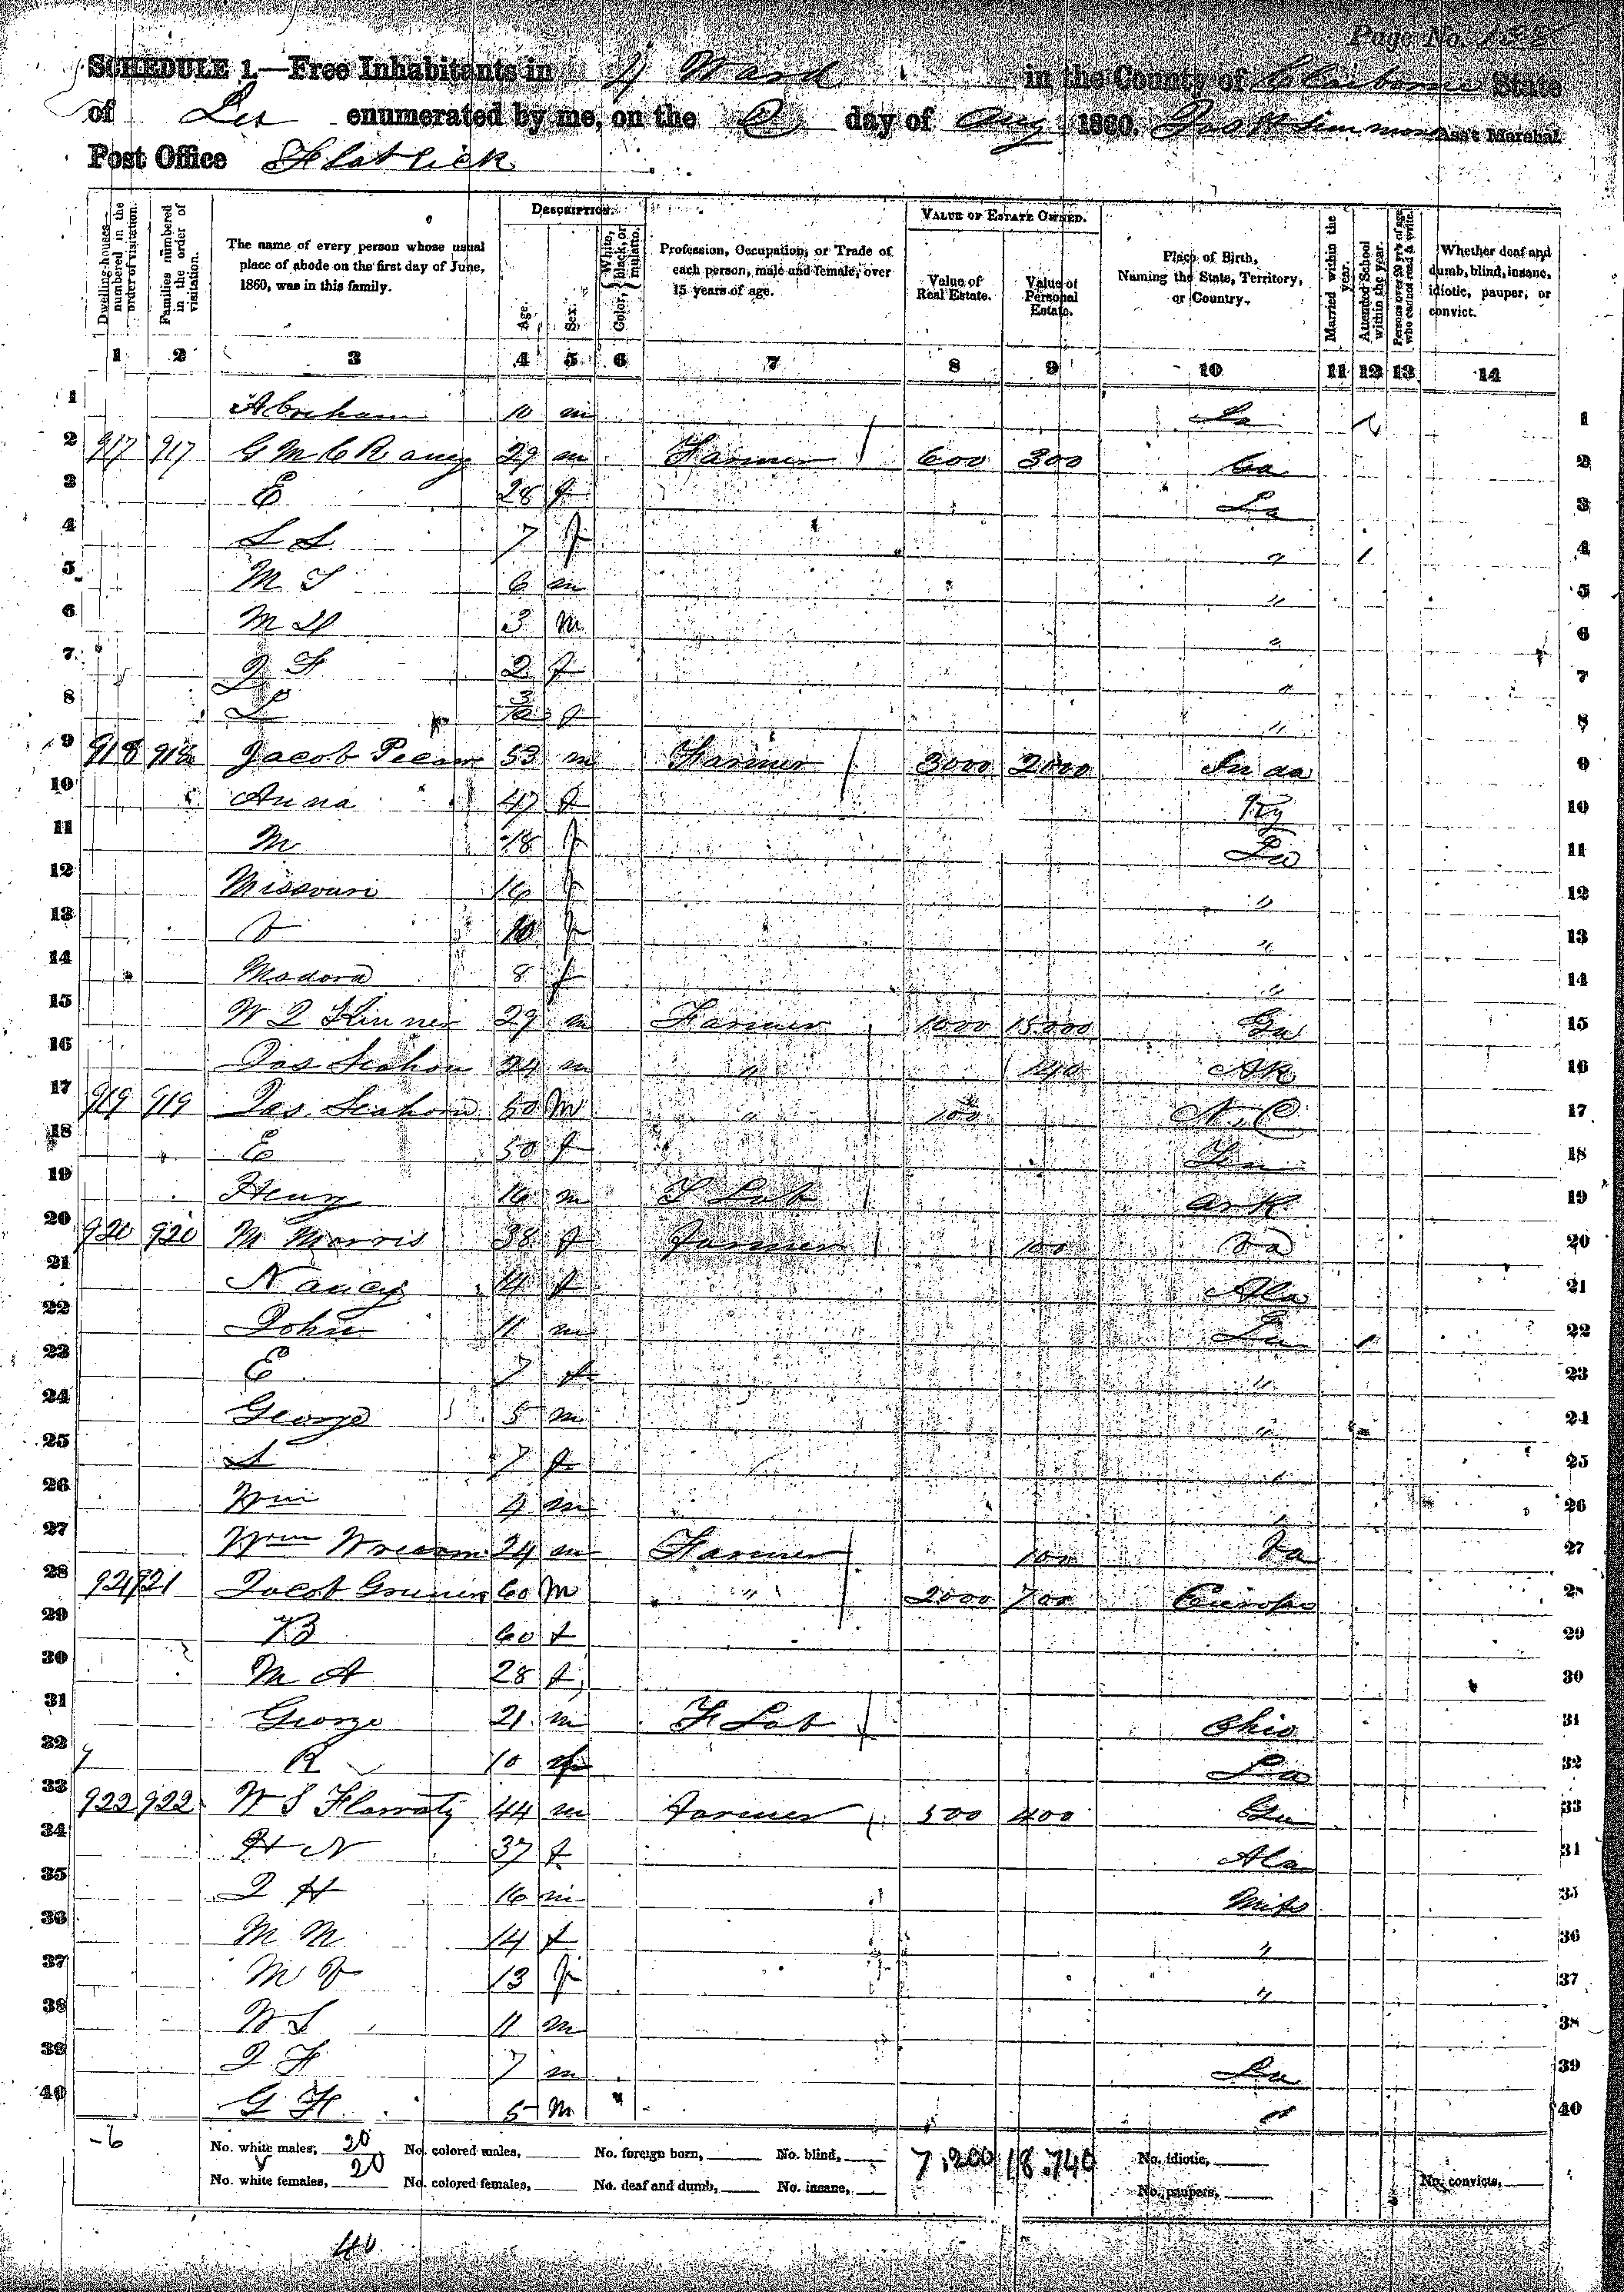 Page No. 138
SCHEDULE 1.—Free Inhabitants in 4 Ward in the County of Claiborne State
of La enumerated by me, on the day of Aug 1860. Jas H Simmons Ass't Marshal.
Post Office Flat Lick
Dwelling-houses numbered in the order of visitation.
Families numbered in the order of visitation.
The name of every person whose usual place of abode on the first day of June, 1860, was in this family.
DESCRIPTION.
Age.
Sex.
Color, White, black, or mulatto.
Profession, Occupation, or Trade of each person, male and female, over 15 years of age.
VALUE OF ESTATE OWNED.
Value of Real Estate.
Value of Personal Estate.
Place of Birth, Naming the State, Territory, or Country.
Married within the year.
Attended School within the year.
Persons over 20 y'rs of age who cannot read & write.
Whether deaf and dumb, blind, insane, idiotic, pauper, or convict.
1 2 3 4 5 6 7 8 9 10 11 12 13 14
1 Abraham 10 m La 1
2 917 917 29 m Farmer 600 300 2
3 E 28 f La 3
4 S S 7 f " / 4
5 M 6 m " 5
6 M 3 m " 6
7 J F 2 f " 7
8 f " 8
9 918 918 Jacob 53 m Farmer 3000 2000 9
10 Anna 47 f Ky 10
11 M 18 f La 11
12 Missouri 16 f " 12
13 10 f " 13
14 Madora 8 f " 14
15 W J Kinner 29 m Farmer 1000 15000 Ga 15
16 Jas Seahorn 24 m " 140 Ark 16
17 919 919 Jas Seahorn 50 m " 100 N. C. 17
18 E 50 f Ten 18
19 Henry 16 m F Lab Ark 19
20 920 920 M Morris 38 f Farmer 100 20
21 Nancy 14 f Ala 21
22 John 11 m La / 22
23 E 7 f " 23
24 George 5 m " 24
25 7 f " 25
26 Wm 4 m " 26
27 Wm 24 m Farmer 100 27
28 921 921 Jacob 60 m " 2000 700 Europe 28
29 B 60 f 29
30 M A 28 f 30
31 George 21 m F Lab Ohio 31
32 R 10 f La 32
33 922 922 W S 44 m Farmer 500 400 Ga 33
34 H N 37 f Ala 34
35 J H 16 m Miss 35
36 M M 14 f " 36
37 M 13 f " 37
38 W S 11 m 38
39 J F 7 m La 39
40 G H 5 m " 40
No. white males, 20 No. colored males, No. foreign born, No. blind, 7,200 18,740 No. idiotic,
No. white females, 20 No. colored females, No. deaf and dumb, No. insane, No. paupers, No. convicts,
40